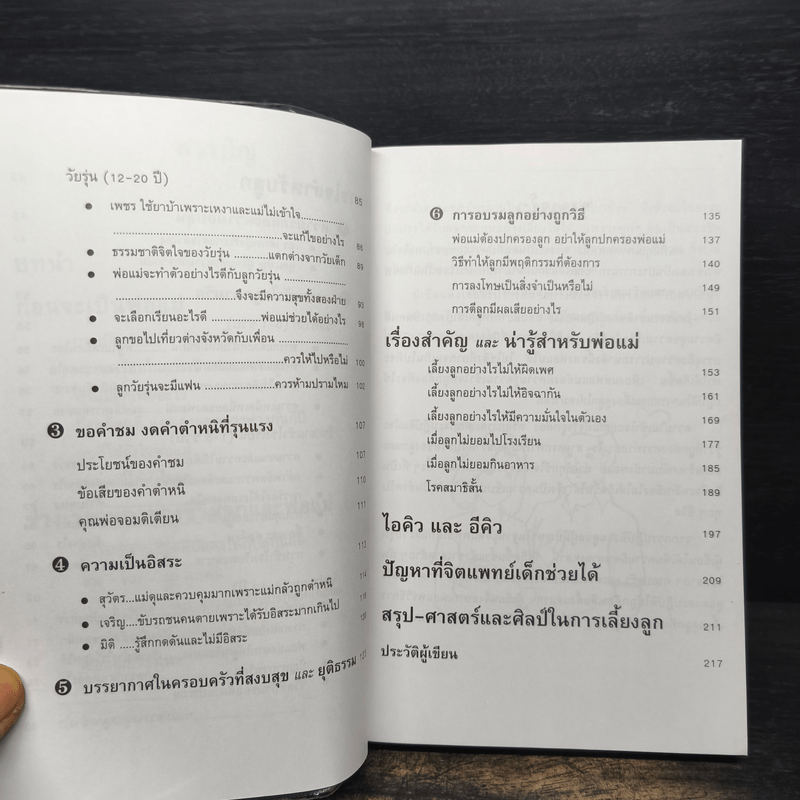 วัยรุ่น (12-20 ปี) 85
● เพชร ใช้ยาบ้าเพราะเหงาและแม่ไม่เข้าใจ....................
....................จะแก้ไขอย่างไร 86
● ธรรมชาติจิตใจของวัยรุ่น ..........แตกต่างจากวัยเด็ก 89
● พ่อแม่จะทำตัวอย่างไรดีกับลูกวัยรุ่น ....................
....................จึงจะมีความสุขทั้งสองฝ่าย 93
● จะเลือกเรียนอะไรดี ................พ่อแม่ช่วยได้อย่างไร 98
● ลูกขอไปเที่ยวต่างจังหวัดกับเพื่อน ....................
....................ควรให้ไปหรือไม่ 100
● ลูกวัยรุ่นจะมีแฟน ....................ควรห้ามปรามไหม 102
❸ ขอคำชม งดคำตำหนิที่รุนแรง 107
ประโยชน์ของคำชม 107
ข้อเสียของคำตำหนิ 110
คุณพ่อจอมติเตียน 111
❹ ความเป็นอิสระ 113
● สุวัตร...แม่ดุและควบคุมมากเพราะแม่กลัวถูกตำหนิ 114
● เจริญ....ขับรถชนคนตายเพราะได้รับอิสระมากเกินไป
● มิติ .....รู้สึกกดดันและไม่มีอิสระ
❺ บรรยากาศในครอบครัวที่สงบสุข และ ยุติธรรม
❻ การอบรมลูกอย่างถูกวิธี 135
พ่อแม่ต้องปกครองลูก อย่าให้ลูกปกครองพ่อแม่ 137
วิธีทำให้ลูกมีพฤติกรรมที่ต้องการ 140
การลงโทษเป็นสิ่งจำเป็นหรือไม่ 149
การตีลูกมีผลเสียอย่างไร 151
เรื่องสำคัญ และ น่ารู้สำหรับพ่อแม่
เลี้ยงลูกอย่างไรไม่ให้ผิดเพศ 153
เลี้ยงลูกอย่างไรไม่ให้อิจฉากัน 161
เลี้ยงลูกอย่างไรให้มีความมั่นใจในตัวเอง 169
เมื่อลูกไม่ยอมไปโรงเรียน 177
เมื่อลูกไม่ยอมกินอาหาร 185
โรคสมาธิสั้น 189
ไอคิว และ อีคิว 197
ปัญหาที่จิตแพทย์เด็กช่วยได้ 209
สรุป-ศาสตร์และศิลป์ในการเลี้ยงลูก 211
ประวัติผู้เขียน 217